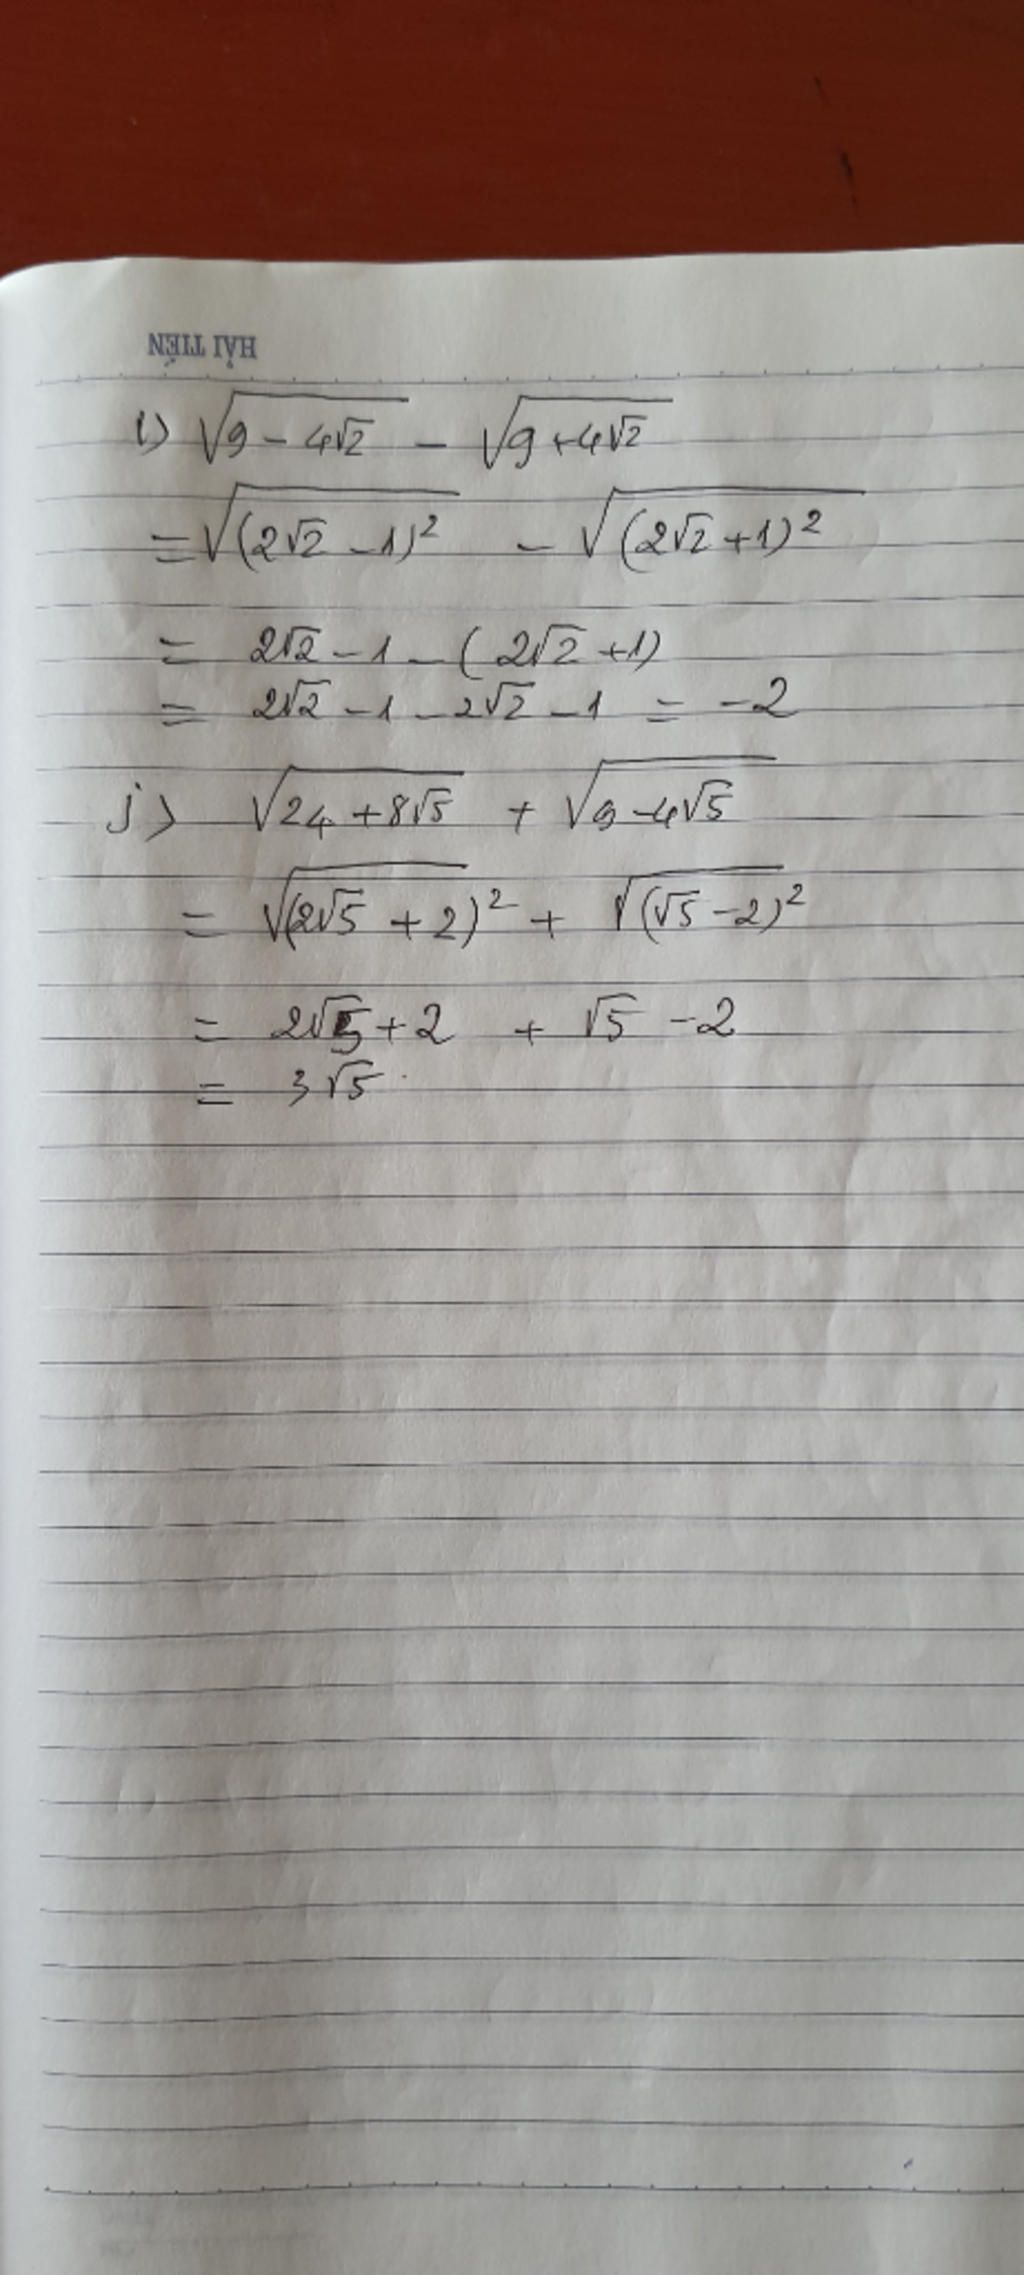 HẢI TIẾN
i) √9 - 4√2 - √9 + 4√2
= √(2√2 - 1)² - √(2√2 + 1)²
= 2√2 - 1 - (2√2 + 1)
= 2√2 - 1 - 2√2 - 1 = -2
j) √24 + 8√5 + √9 - 4√5
= √(2√5 + 2)² + √(√5 - 2)²
= 2√5 + 2 + √5 - 2
= 3√5.